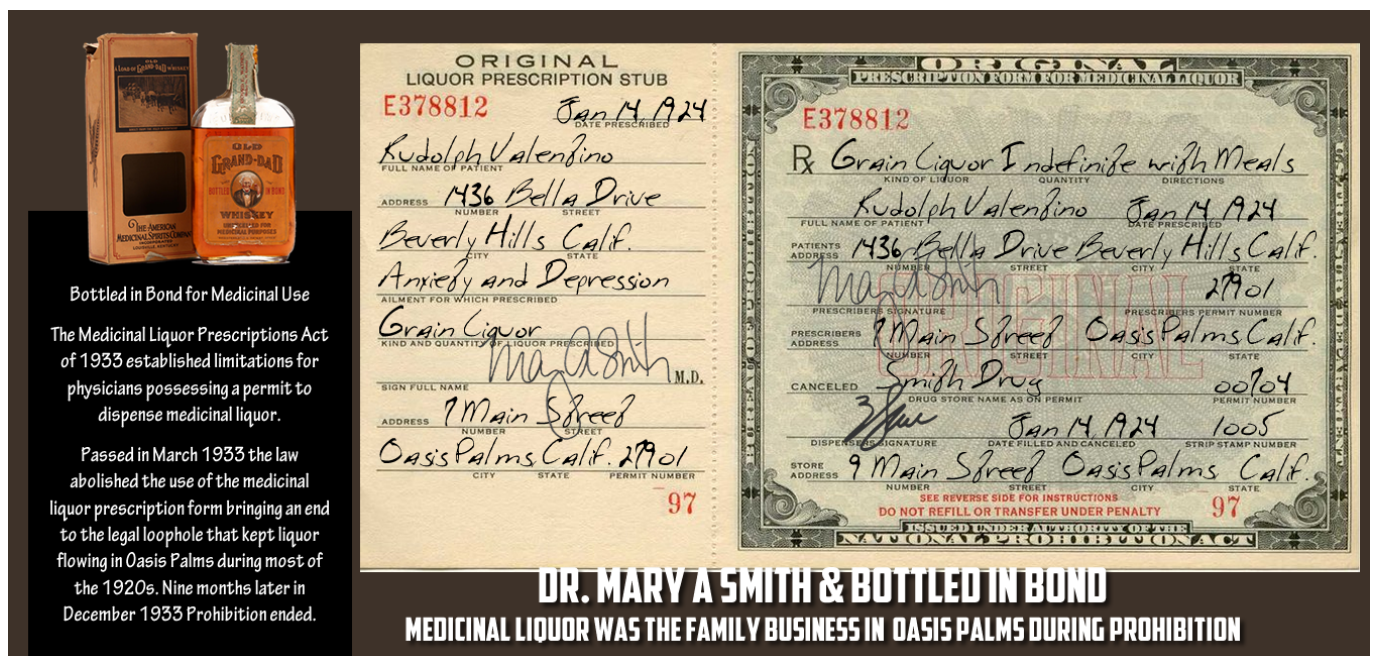 OLD
GRAND-DAD
BOTTLED IN BOND
WHISKEY
UNEXCELLED FOR
MEDICINAL PURPOSES
THE AMERICAN
MEDICINAL SPIRITS COMPANY
INCORPORATED
LOUISVILLE, KENTUCKY
Bottled in Bond for Medicinal Use
The Medicinal Liquor Prescriptions Act
of 1933 established limitations for
physicians possessing a permit to
dispense medicinal liquor.
Passed in March 1933 the law
abolished the use of the medicinal
liquor prescription form bringing an end
to the legal loophole that kept liquor
flowing in Oasis Palms during most of
the 1920s. Nine months later in
December 1933 Prohibition ended.
ORIGINAL
LIQUOR PRESCRIPTION STUB
E378812 Jan 14, 1924
DATE PRESCRIBED
Rudolph Valentino
FULL NAME OF PATIENT
ADDRESS 1436 Bella Drive
NUMBER STREET
Beverly Hills Calif.
CITY STATE
Anxiety and Depression
AILMENT FOR WHICH PRESCRIBED
Grain Liquor
KIND AND QUANTITY OF LIQUOR PRESCRIBED
Mary A Smith M.D.
SIGN FULL NAME
ADDRESS 7 Main Street
NUMBER STREET
Oasis Palms, Calif. 27901
CITY STATE PERMIT NUMBER
97
ORIGINAL
PRESCRIPTION FORM FOR MEDICINAL LIQUOR
E378812
Rx Grain Liquor Indefinite with Meals
KIND OF LIQUOR QUANTITY DIRECTIONS
Rudolph Valentino Jan 14, 1924
FULL NAME OF PATIENT DATE PRESCRIBED
PATIENTS ADDRESS 1436 Bella Drive Beverly Hills Calif.
NUMBER STREET CITY STATE
Mary A Smith 27901
PRESCRIBERS SIGNATURE PRESCRIBERS PERMIT NUMBER
ORIGINAL
PRESCRIBERS ADDRESS 7 Main Street Oasis Palms Calif.
NUMBER STREET CITY STATE
CANCELED Smith Drug 00704
DRUG STORE NAME AS ON PERMIT PERMIT NUMBER
Jan 14, 1924 1005
DISPENSERS SIGNATURE DATE FILLED AND CANCELED STRIP STAMP NUMBER
STORE ADDRESS 9 Main Street Oasis Palms Calif.
NUMBER STREET CITY STATE
SEE REVERSE SIDE FOR INSTRUCTIONS
DO NOT REFILL OR TRANSFER UNDER PENALTY 97
ISSUED UNDER AUTHORITY OF THE
NATIONAL PROHIBITION ACT
DR. MARY A SMITH & BOTTLED IN BOND
MEDICINAL LIQUOR WAS THE FAMILY BUSINESS IN OASIS PALMS DURING PROHIBITION